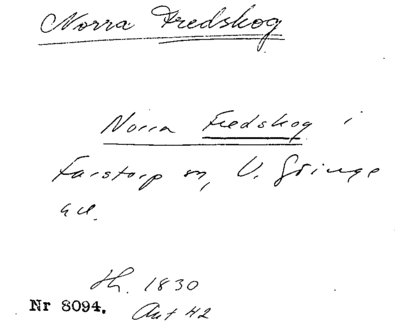 Norra Fredskog
Norra Fredskog i
Farstorp sn, V. Göinge
hd.
Hf. 1830
Nr 8094. Avt 42